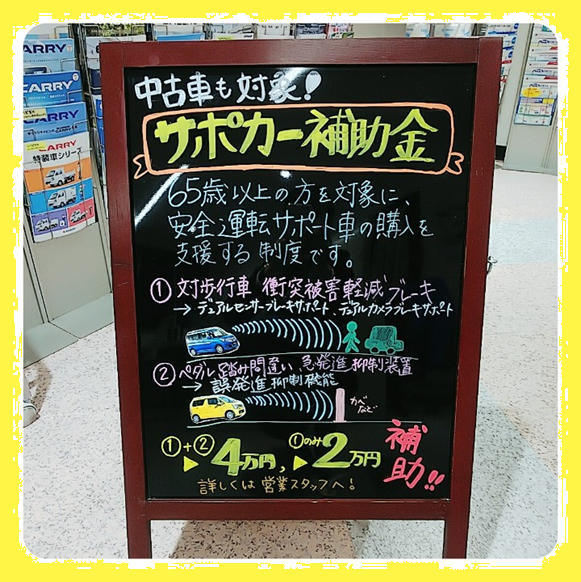 中古車も対象!
サポカー補助金
65歳以上の方を対象に、
安全運転サポート車の購入を
支援する制度です。
①対歩行車 衝突被害軽減ブレーキ
→デュアルセンサーブレーキサポート、デュアルカメラブレーキサポート
②ペダル踏み間違い 急発進抑制装置
→誤発進抑制機能
かべ
など
①+②▶4万円、①のみ▶2万円
補助!!
詳しくは営業スタッフへ!
CARRY
CARRY
CARRY
CARRY
特装車シリーズ